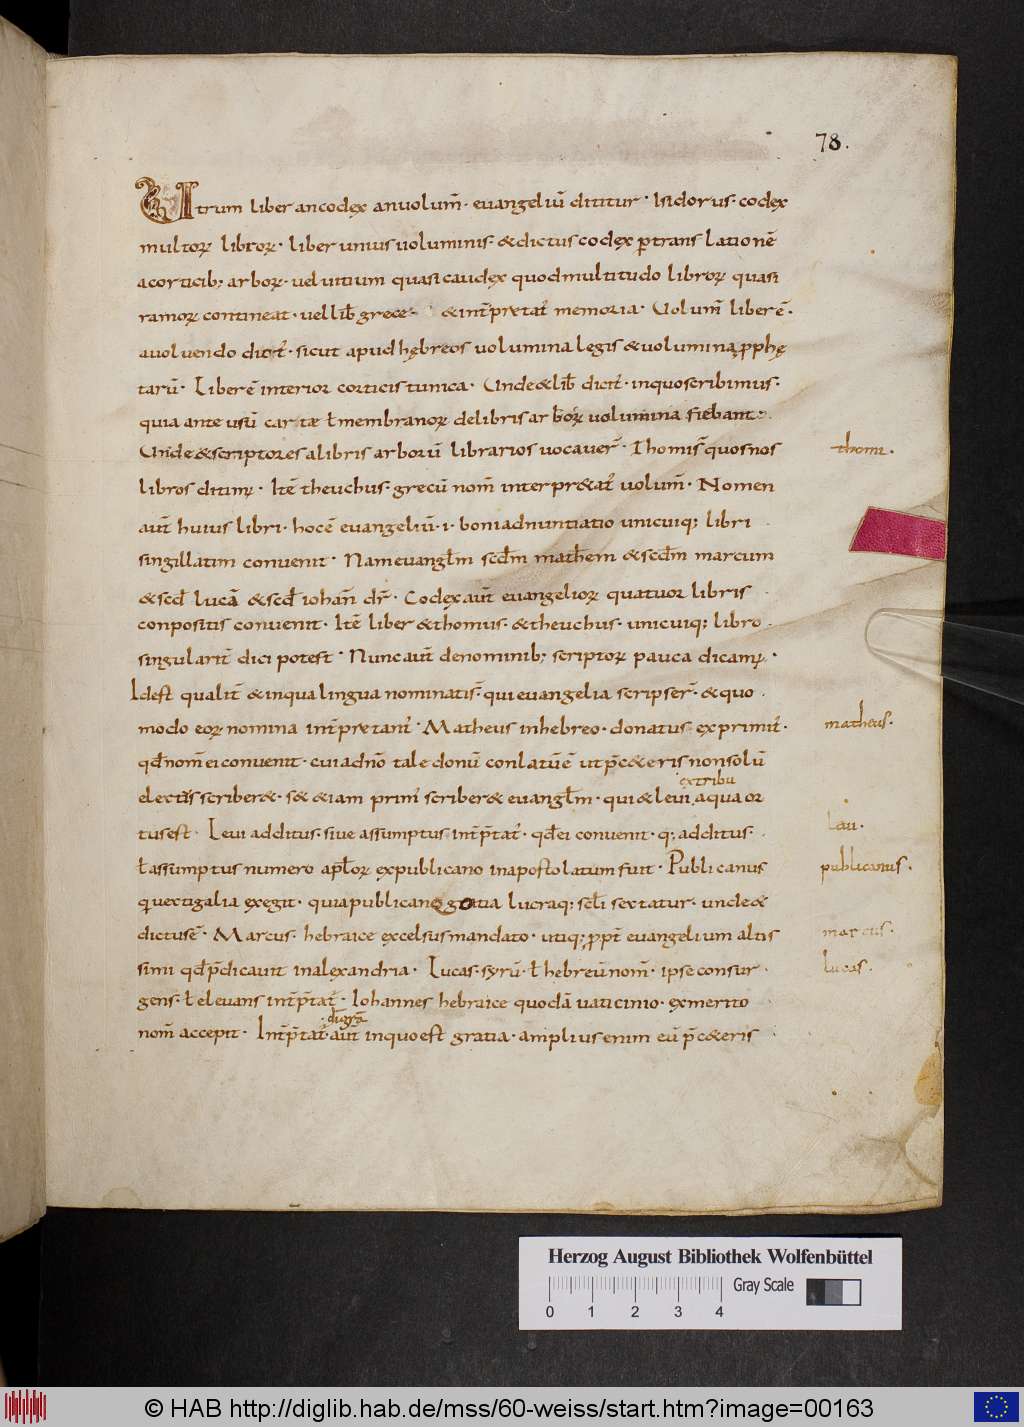 78.
Utrum liber an codęx an volum̄. evangeliū dititur. Isidorus. codęx
multoꝝ libroꝝ. liber unius voluminis. & dictus codęx ꝑ translationē
a corticib; arboꝝ. vel vitium quasi caudęx quod multitudo libroꝝ quasi
ramoꝝ contineat. vel lib̄ grece & int̄pretat̄ memoria. Volum̄ liber ē.
a volvendo dicit̄. sicut apud hębreos volumina legis & volumina ꝓphę
tarū. Liber ē interior corticis tunica. Unde & lib̄ dicit̄. in quo scribimus.
quia ante usū cartae ł membranoꝝ de libris arboꝝ volumina fiebant.
Unde & scriptores a libris arborū librarios vocaver̄. Thomis̄ quos nos
thomi.
libros ditim᷒. Itē theuchus. grecū nom̄ interpr&at̄ volum̄. Nomen
aut̄ huius libri. hoc ē evangeliū. i. bona adnuntiatio unicuiq; libri
singillatim convenit. Nam evangł̄m scd̄m matheum & scd̄m marcum
& scd̄ lucā & scd̄ iohan̄ dr̄. Codęx aut̄ evangelioꝝ quatuor libris
conpositis convenit. Itē liber & thomus. & theuchus. unicuiq; libro.
singularit̄ dici potest. Nunc aut̄ de nominib; scriptoꝝ pauca dicam᷒.
Id est qualit̄ & in qua lingua nominatis̄. qui evangelia scripser̄. & quo
modo eoꝝ nomina int̄pretant̄. Matheus in hebreo. donatus. exprimit̄.
matheus.
qd̄ nom̄ ei convenit. cui a dn̄o tale donū conlatū ē ut p̄ c&eris non solū
extribu
electus scriber&. s& &iam primū scriber& evangł̄m. qui & levi a qua or
tus est. Levi additus. sive assumptus. int̄p̄tat̄. qd̄ ei convenit. q; additus.
Levi.
ł assumptus numero apł̄oꝝ ex publicano in apostolatum fuit. Publicanus
publicanus.
q vectigalia exęgit. quia publicanę gratia lucraq; scł̄i sectatur. unde &
dictus ē. Marcus. hebraice excelsus mandato. utiq; ꝓpt̄ evangelium altis
marcus.
simi qd̄ p̄dicavit in alexandria. Lucas. syrū. ł hebreū nom̄. ipse consur
lucas.
gens. ł elevans int̄p̄tat̄. Iohannes hebraice quodā vaticinio. ex merito
nom̄ accepit. Int̄p̄tat̄ aut̄ in quo est gratia. amplius enim eū p̄ c&eris
Herzog August Bibliothek Wolfenbüttel
Gray Scale
0 1 2 3 4
© HAB http://diglib.hab.de/mss/60-weiss/start.htm?image=00163